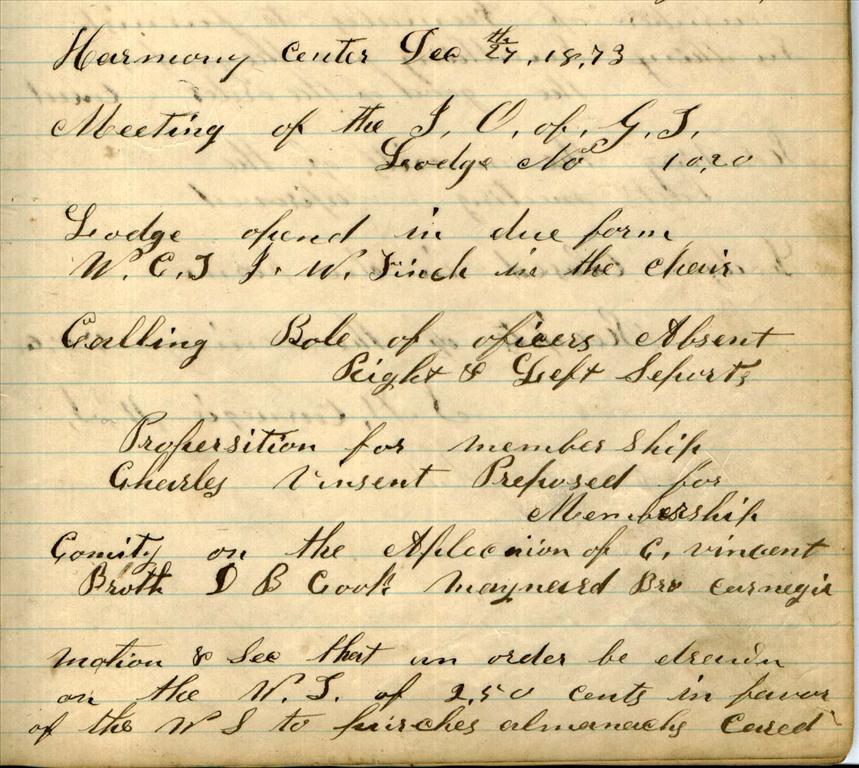 Harmony Center Dec 27th, 1873
Meeting of the I, O, of, G, T,
Lodge No 1020
Lodge opend in due form
W. C, T J. W. Finch in the chair
Calling Role of oficers Absent
Right & Left Seports
Propersition for member ship
Charles Vinsent Preposed for
Membership
Comity on the Aplecaiion of C, vincent
Broth D B Cook Maynard Bro Carnegia
Motion & Sec that an order be drawn
on the W. T. of 2.50 cents in favor
of the W S to purches almanachs Cared